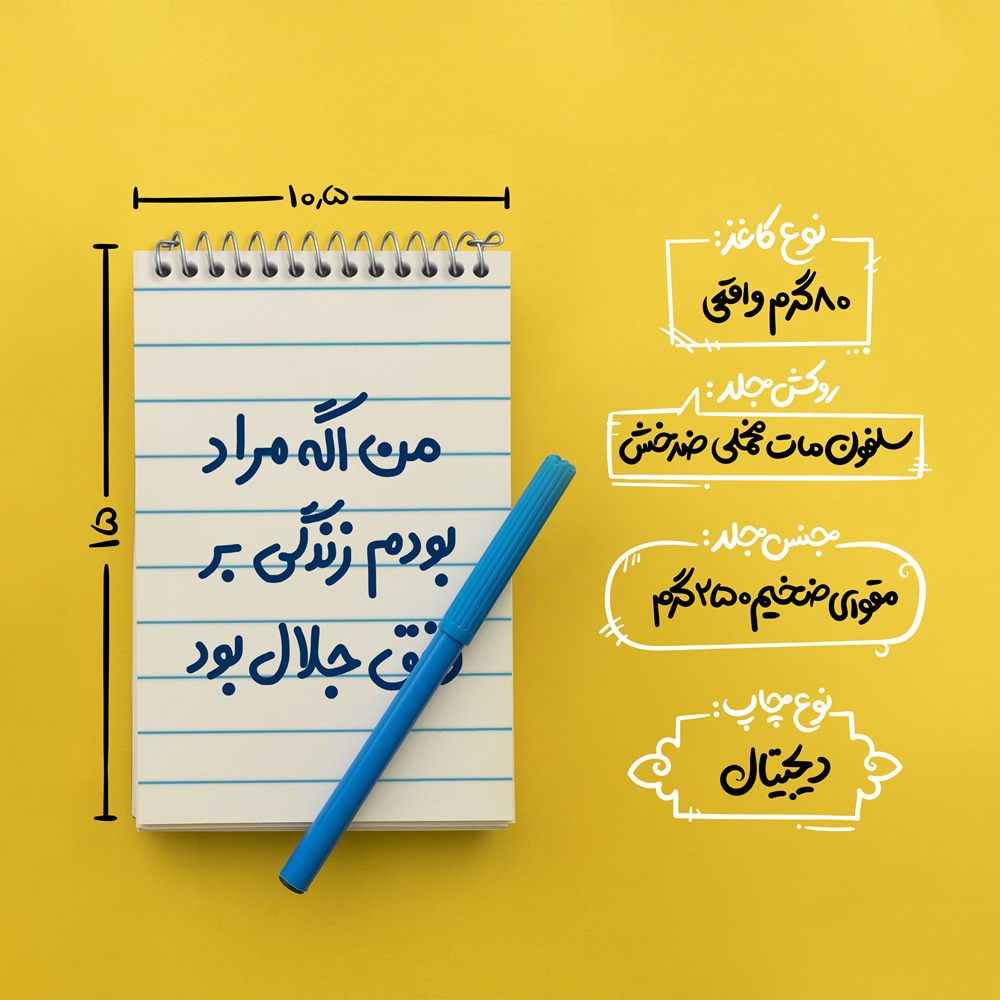 ۱۰٫۵
۱۵
من اگه مراد
بودم زندگی بر
وفق جلال بود
نوع کاغذ:
۸۰ گرم واقعی
روکش جلد:
سلفون مات مخملی ضدخش
جنس جلد:
مقوای ضخیم ۲۵۰ گرم
نوع چاپ:
دیجیتال